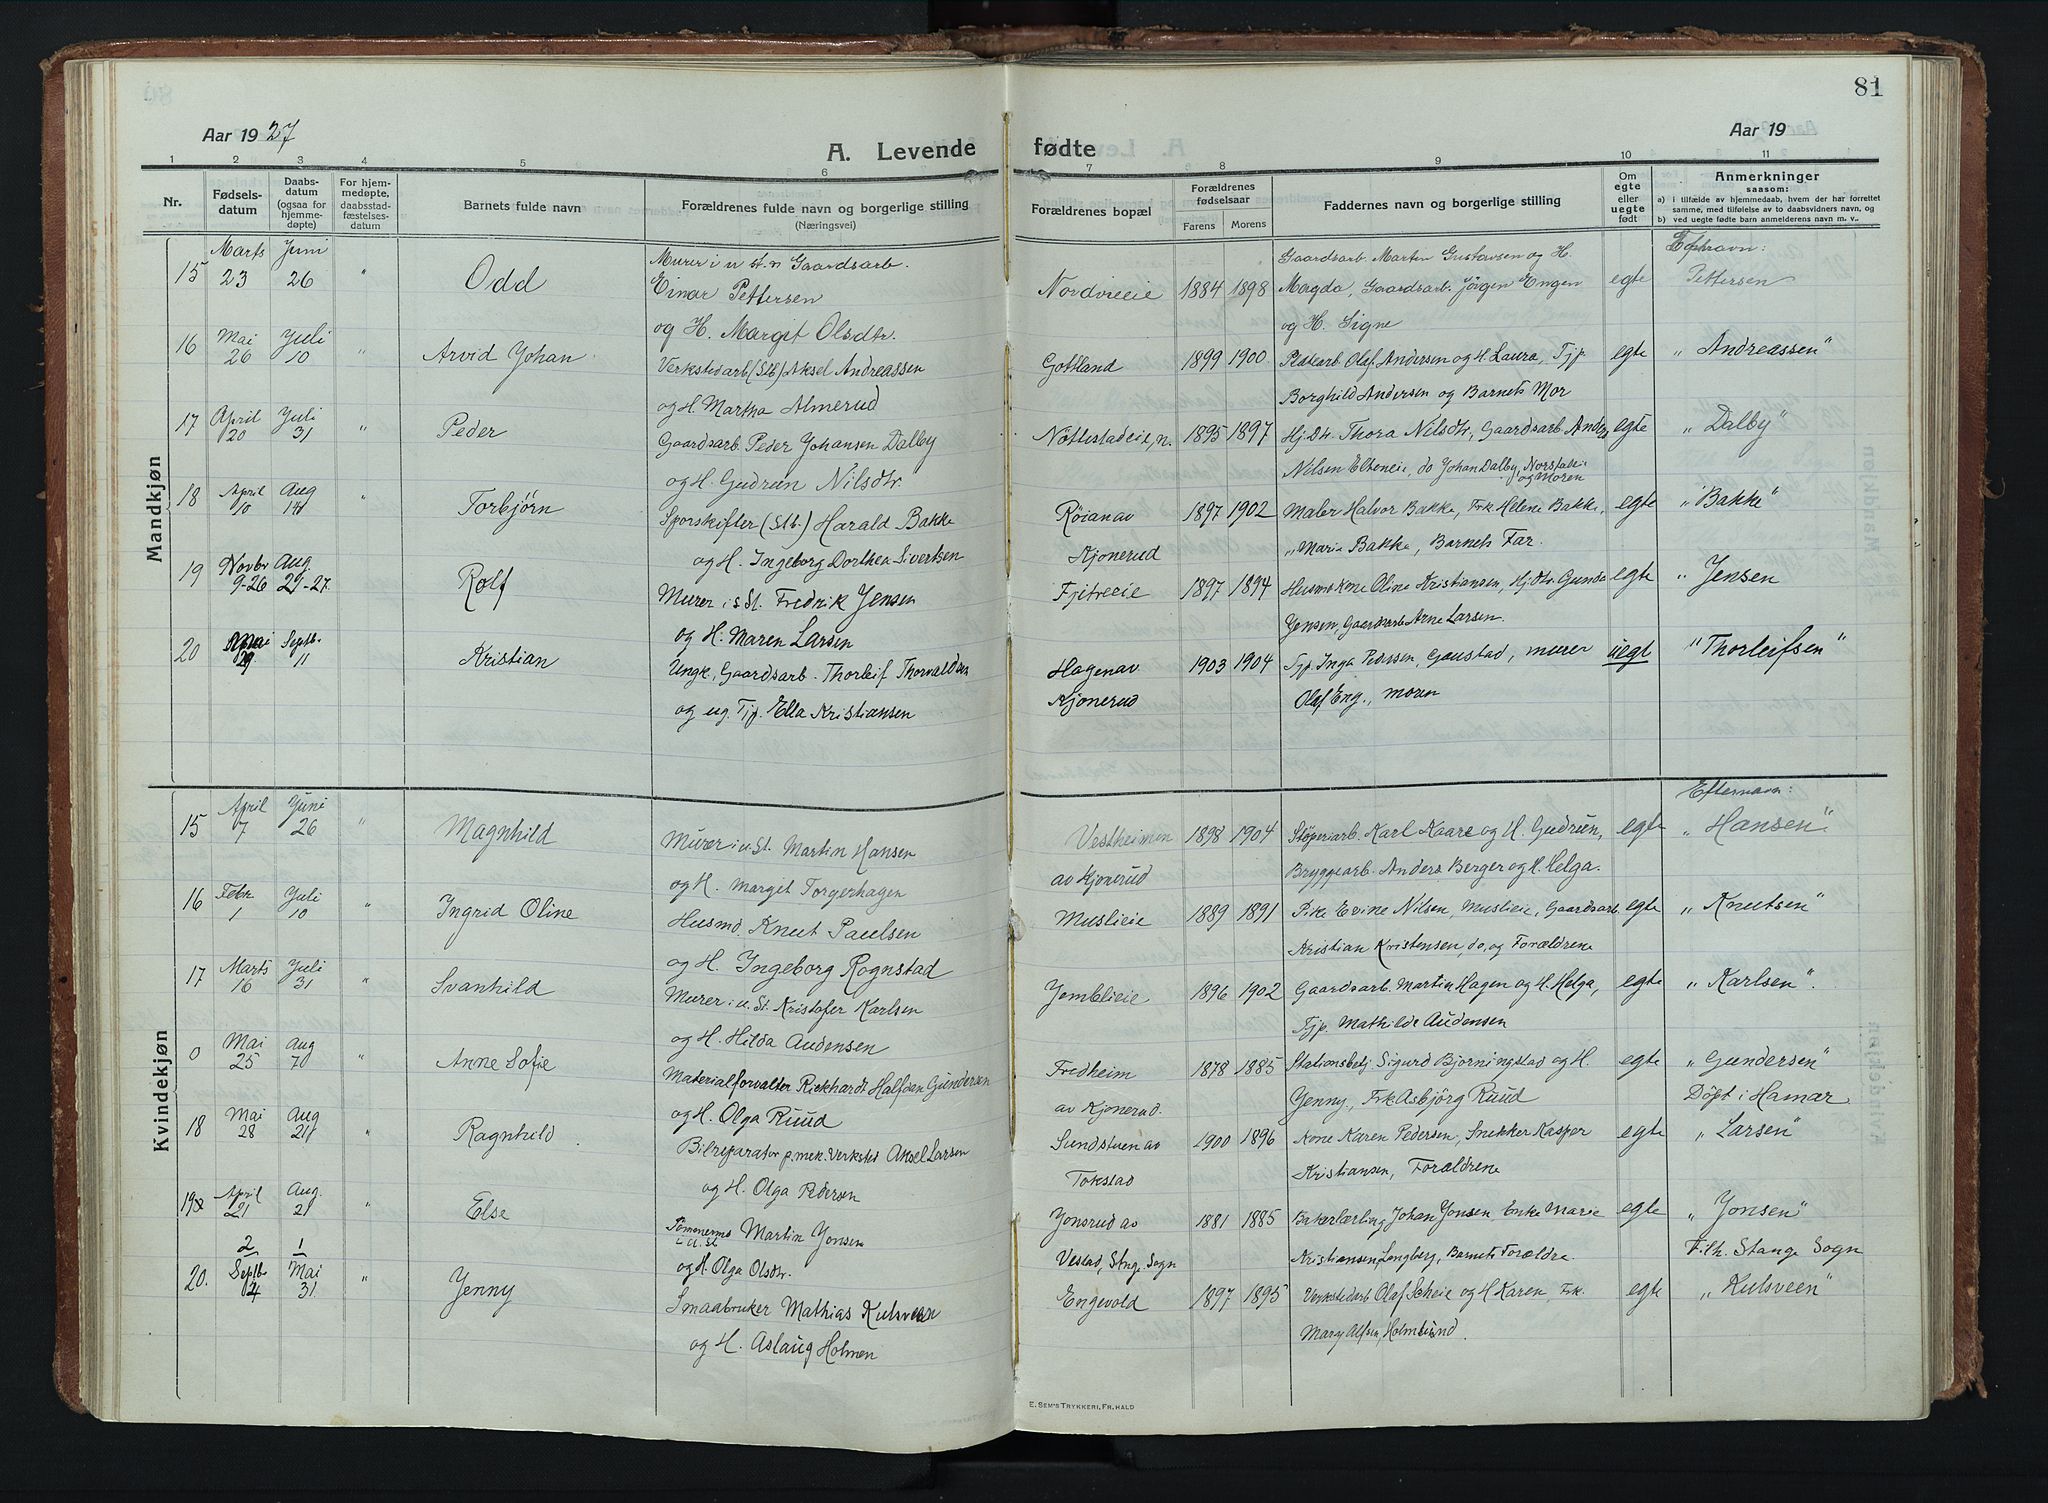 81
Aar 1927
Aar 19
A. Levende fødte
1 2 3 4 5 6 7 8 9 10 11
Nr.
Fødselsdatum
Daabsdatum (ogsaa for hjemmedøpte)
For hjemmedøpte, daabsstadfæstelsesdatum
Barnets fulde navn
Forældrenes fulde navn og borgerlige stilling
(Næringsvei)
Forældrenes bopæl
Forældrenes fødselsaar
Farens Morens
Faddernes navn og borgerlige stilling
Om egte eller uegte født
Anmerkninger
saasom:
a) i tilfælde av hjemmedaab, hvem der har forrettet samme, med tilføielse av to daabsvidners navn, og
b) ved uegte fødte barn anmelderens navn m. v..
Mandkjøn
Marts Juni Murer i u st. n Gaardsarb. Gaardsarb. Martin Gustavsen og H. Efternavn:
15 23 26 " Odd Einar Pettersen Nordvieeie 1884 1898 Magda, Gaardsarb. Jörgen Engen egte Pettersen
og H. Margit Olsdtr. og H. Signe
16 Mai 26 Juli 10 " Arvid Johan Verkstedarb (Stb) Aksel Andreassen Gotland 1899 1900 Platearb. Olaf Andersen og H. Laura, Tjp. egte " Andreassen"
og H. Martha Almerud Borghild Andersen og Barnets Mor
17 April 20 Juli 31 " Peder Gaardsarb. Peder Johansen Dalby Nöttestadeie, n. 1895 1897 Hj. Dtr. Thora Nilsdtr, Gaardsarb Anders egte " Dalby"
og H. Gudrun Nilsdtr. Nilsen Elteneie, do Johan Dalby, og Moren
18 April 10 Aug 14 " Torbjörn Sporskifter (Stb.) Harald Bakke Röian av 1897 1902 Maler Halvor Bakke, Frk Helene Bakke, egte " Bakke"
og H. Ingeborg Dorthea Sivertsen Kjonerud " Maria Bakke, Barnets Far.
19 Novbr 9-26 Aug 29-27. Rolf Murer i s St. Fredrik Jensen Fjitreeie 1897 1894 Husmdkone Oline Kristiansen, Hj.dtr. Gunda egte " Jensen
og H. Maren Larsen Jensen, Gaardsarb Arne Larsen.
20 Mai 29 Septb. 11 Kristian Ungk., Gaardsarb. Thorleif Thorvaldsen Hagen av 1903 1904 Tjp. Inga Pedersen, Gaustad, murer uegt " Thorleifsen"
og ug. Tjp. Ella Kristiansen Kjonerud Olaf Eng., moren
Kvindekjøn
Efternavn:
15 April 7 Juni 26 " Magnhild Murer i u. St. Martin Hansen Vestheimen 1898 1904 Stöperiarb. Karl Kaare og H. Gudrun, egte " Hansen"
og H. Margit Torgerhagen av Kjonerud Bryggearb. Anders Berger og H. Helga.
16 Febr 1 Juli 10 " Ingrid Oline Husmd. Knut Paulsen Muslieie 1889 1891 Pike Evine Nilsen, Muslieie, Gaardsarb. egte " Knutsen"
og H. Ingeborg Rognstad Kristian Kristensen, do, og Forældrene
17 Marts 16 Juli 31 " Svanhild Murer i u. St. Kristofer Karlsen Jemblieie 1896 1902 Gaardsarb. Martin Hagen og H. Helga, egte " Karlsen".
og H. Hilda Audensen Tjp. Mathilde Audensen
0 Mai 25 Aug 70 " Anne Sofie Materialforvalter Rickhardt Halfdan Gundersen Fredheim 1878 1885 Stationsbetj. Sigurd Bjorningstad og H. egte " Gundersen"
og H. Olga Ruud av Kjonerud. Jenny, Frk Asbjörg Ruud Döpt i Hamar
18 Mai 28 Aug 21 " Ragnhild Bilreparatør p. mek. Verksted Aksel Larsen Sundstuen av 1900 1896 Kone Karen Pedersen, Snekker Kasper egte " Larsen"
og H. Olga Pedersen Tokstad Kristiansen, Forældrene
19 April 21 Aug. 21 " Else Tömmermd i u. St Martin Jonsen Jonsrud av 1881 1885 Bakerlærling Johan Jonsen, Enke Marie egte " Jonsen"
og H. Olga Olsdtr. Vestad, Stnge. Sogn Kristiansen, Langberg, Barnets Forældre. Tilh. Stange Sogn
2 1
20. Septb 4 Mai 31 " Jenny Smaabruker Mathias Kulsveen Engevold 1897 1895 Verkstedarb Olaf Scheie og H Karen, Frk. egte " Kulsveen"
og H. Aslaug Holmen Mary Alfsen, Holmlund.
E. SEM'S TRYKKERI, FR. HALD